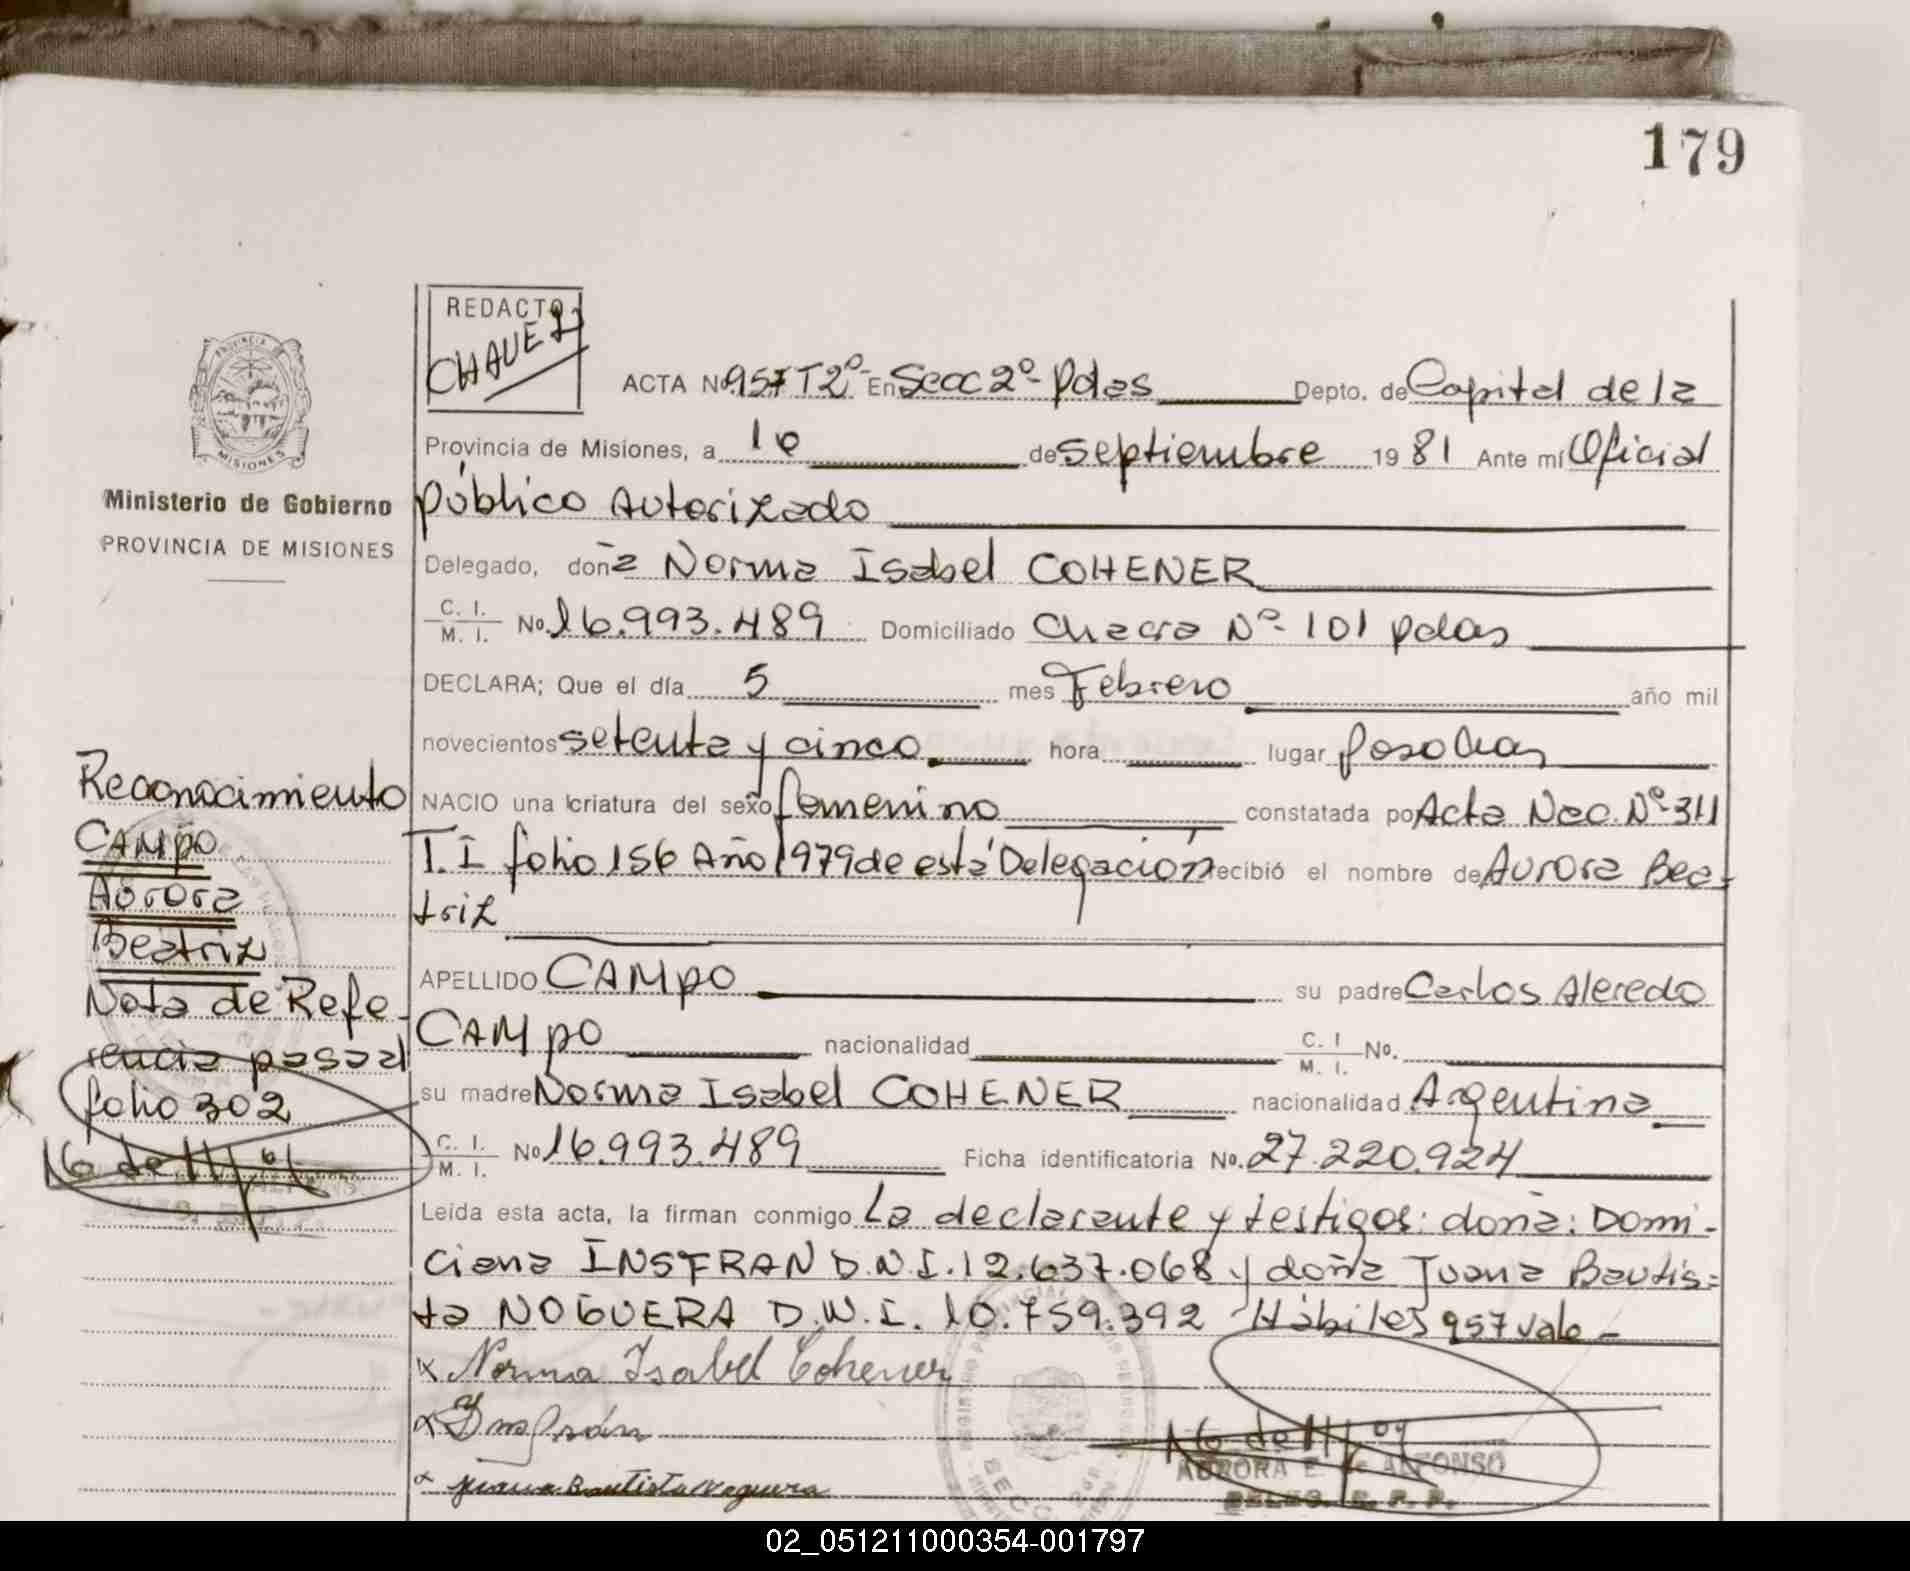 179
REDACTO
CHAVEZ
ACTA No 957 T2º En Secc 2º- Pdas Depto. de Capital de la
Provincia de Misiones, a 10 de septiembre 1981 Ante mí Oficial
público Autorizado
Delegado, doña Norma Isabel COHENER
C. I. M. I. No. 16.993.489 Domiciliado Chacra Nº- 101 pdas
DECLARA; Que el día 5 mes Febrero año mil
novecientos setenta y cinco hora lugar posadas
NACIO una criatura del sexo femenino constatada por Acta Nac. Nº 311
T.I folio 156 Año 1979 de esta Delegación recibió el nombre de Aurora Bea-
triz
APELLIDO CAMPO su padre Carlos Alcredo
CAMPO nacionalidad C. I M. I. No.
su madre Norma Isabel COHENER nacionalidad Argentina
C. I. M. I. No 16.993.489 Ficha identificatoria No. 27.220.924
Leída esta acta, la firman conmigo La declarante y testigos: doña: Domi-
ciana INSFRAN D.N.I. 12.637.068 y doña Juana Bautis=
ta NOGUERA D.N.I. 10.759.392 Hábiles 957 vale-
x Norma Isabel Cohener
x Insfrán
x Juana Bautista Noguera
AURORA E. de ALFONSO
DELEG. R. P. P.
PROVINCIA DE
MISIONES
Ministerio de Gobierno
PROVINCIA DE MISIONES
Reconocimiento
CAMPO
Aurora
Beatriz
Nota de Refe-
rencia pasa al
folio 302
02_051211000354-001797